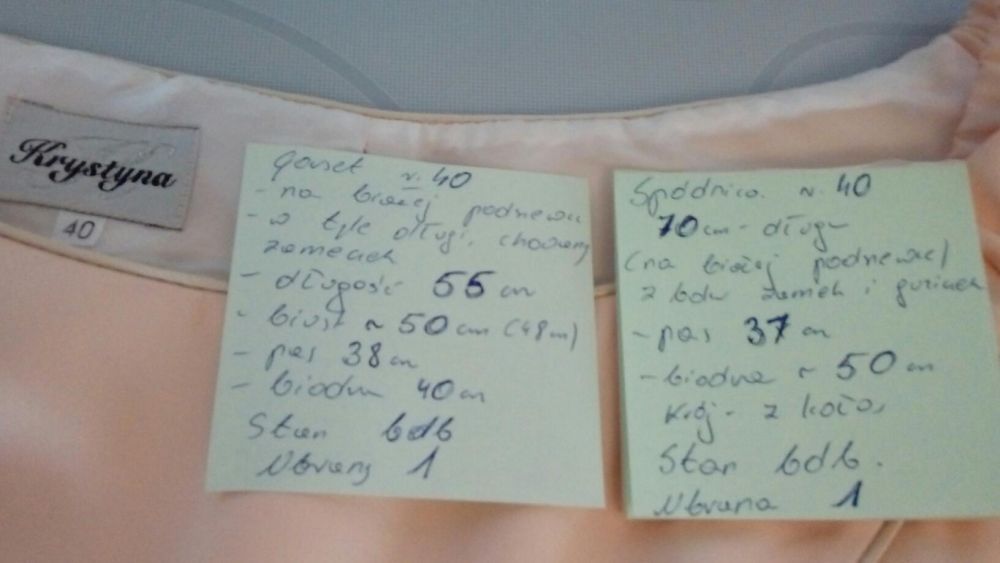 Krystyna
40
gorset r. 40
- na białej podszewce
- w tyle długi, chowany
zameczek
- długość 55 cm
- biust ~ 50 cm (48 cm)
- pas 38 cm
- biodra 40 cm
Stan bdb
Ubrany 1
Spódnica r. 40
70 cm - długa
(na białej podszewce)
z boku zamek i guziczek
- pas 37 cm
- biodra ~ 50 cm
Krój - z koła
Stan bdb.
Ubrana 1